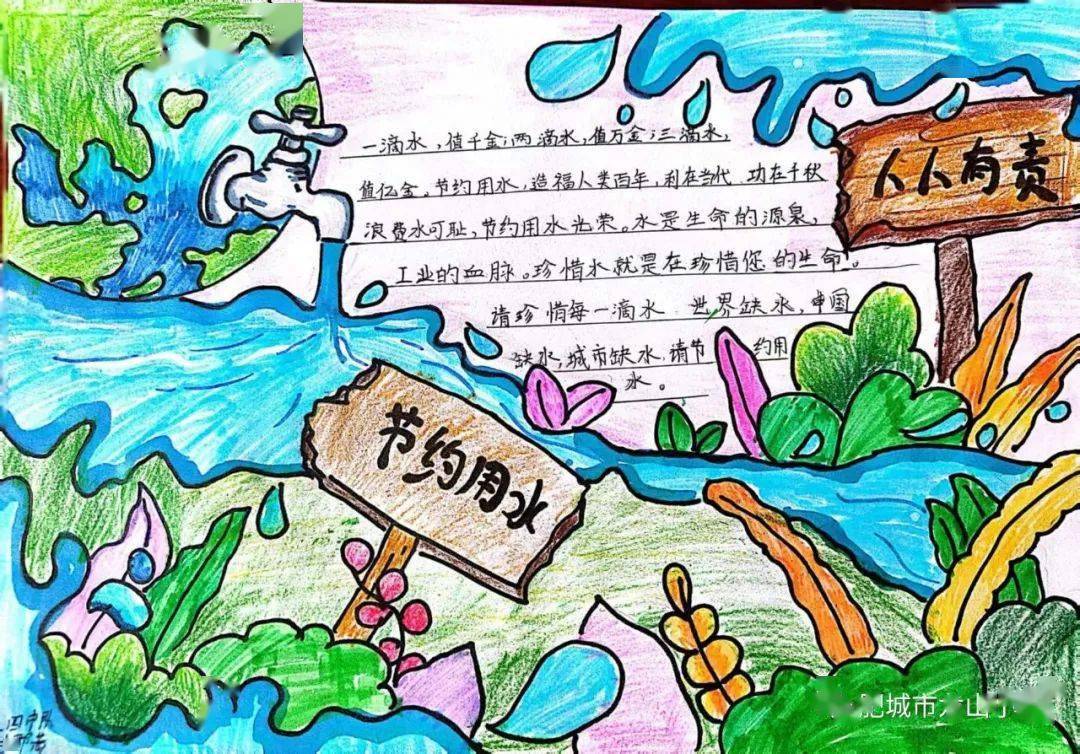 一滴水，值千金；两滴水，值万金；三滴水，
值亿金。节约用水，造福人类百年，利在当代 功在千秋
浪费水可耻，节约用水光荣。水是生命的源泉，
工业的血脉。珍惜水就是在珍惜您的生命。
请珍惜每一滴水 世界缺水，中国
缺水，城市缺水，请节 约用
水。
人人有责
节约用水
肥城市 山